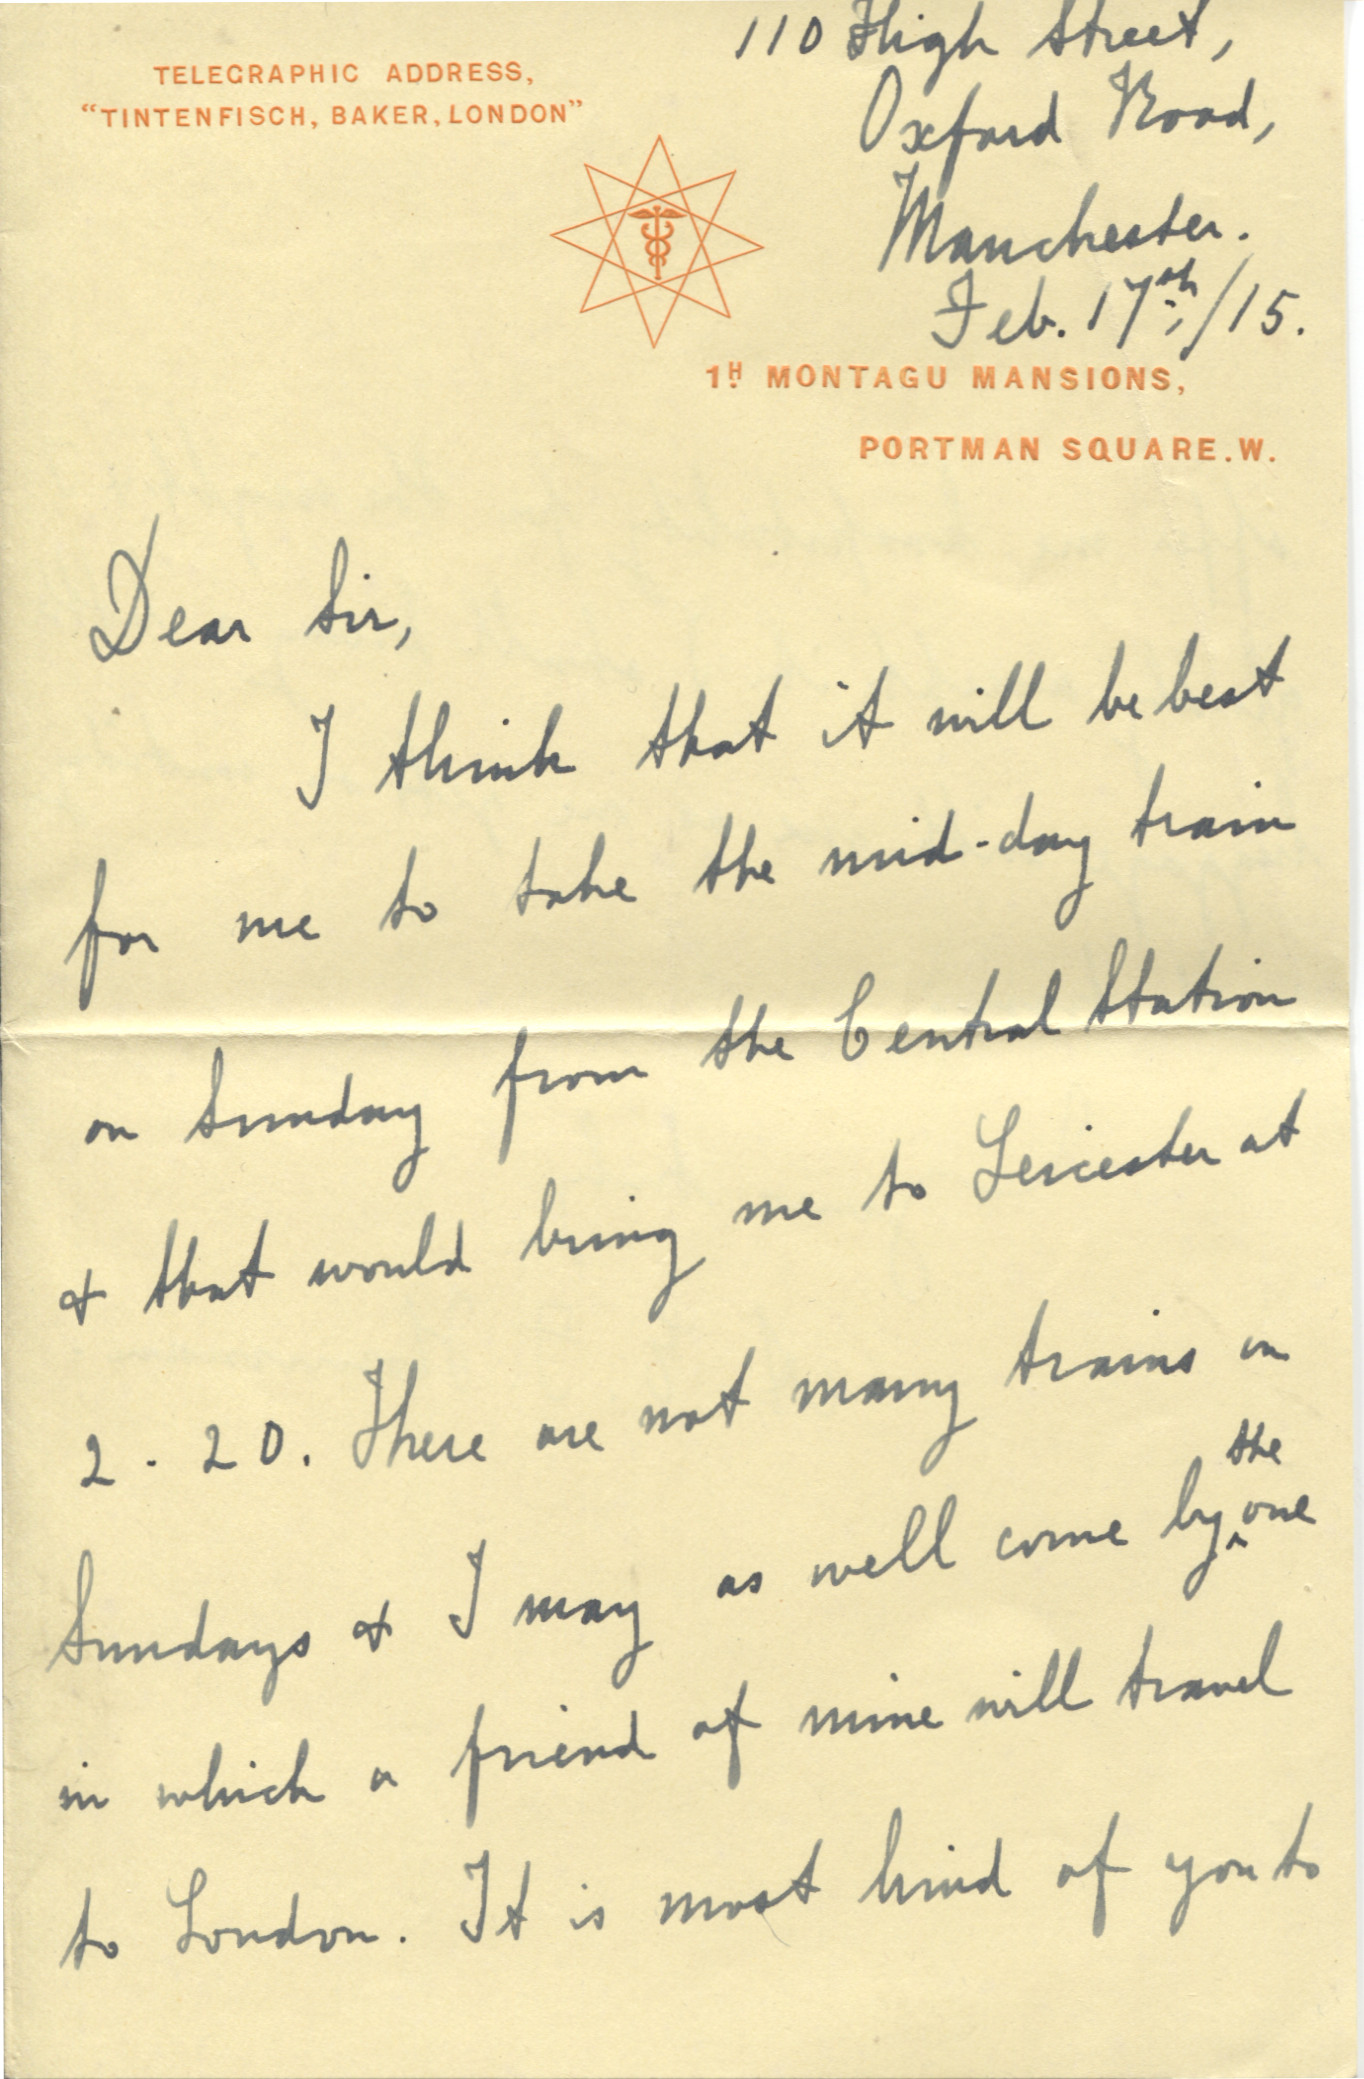 110 High Street,
TELEGRAPHIC ADDRESS,
"TINTENFISCH, BAKER, LONDON"
Oxford Road,
Manchester.
Feb. 17th/15.
1H MONTAGU MANSIONS,
PORTMAN SQUARE. W.
Dear Sir,
I think that it will be best
for me to take the mid-day train
on Sunday from the Central Station
& that would bring me to Leicester at
2 - 20. There are not many trains on
Sundays & I may as well come by the one
in which a friend of mine will travel
to London. It is most kind of you to